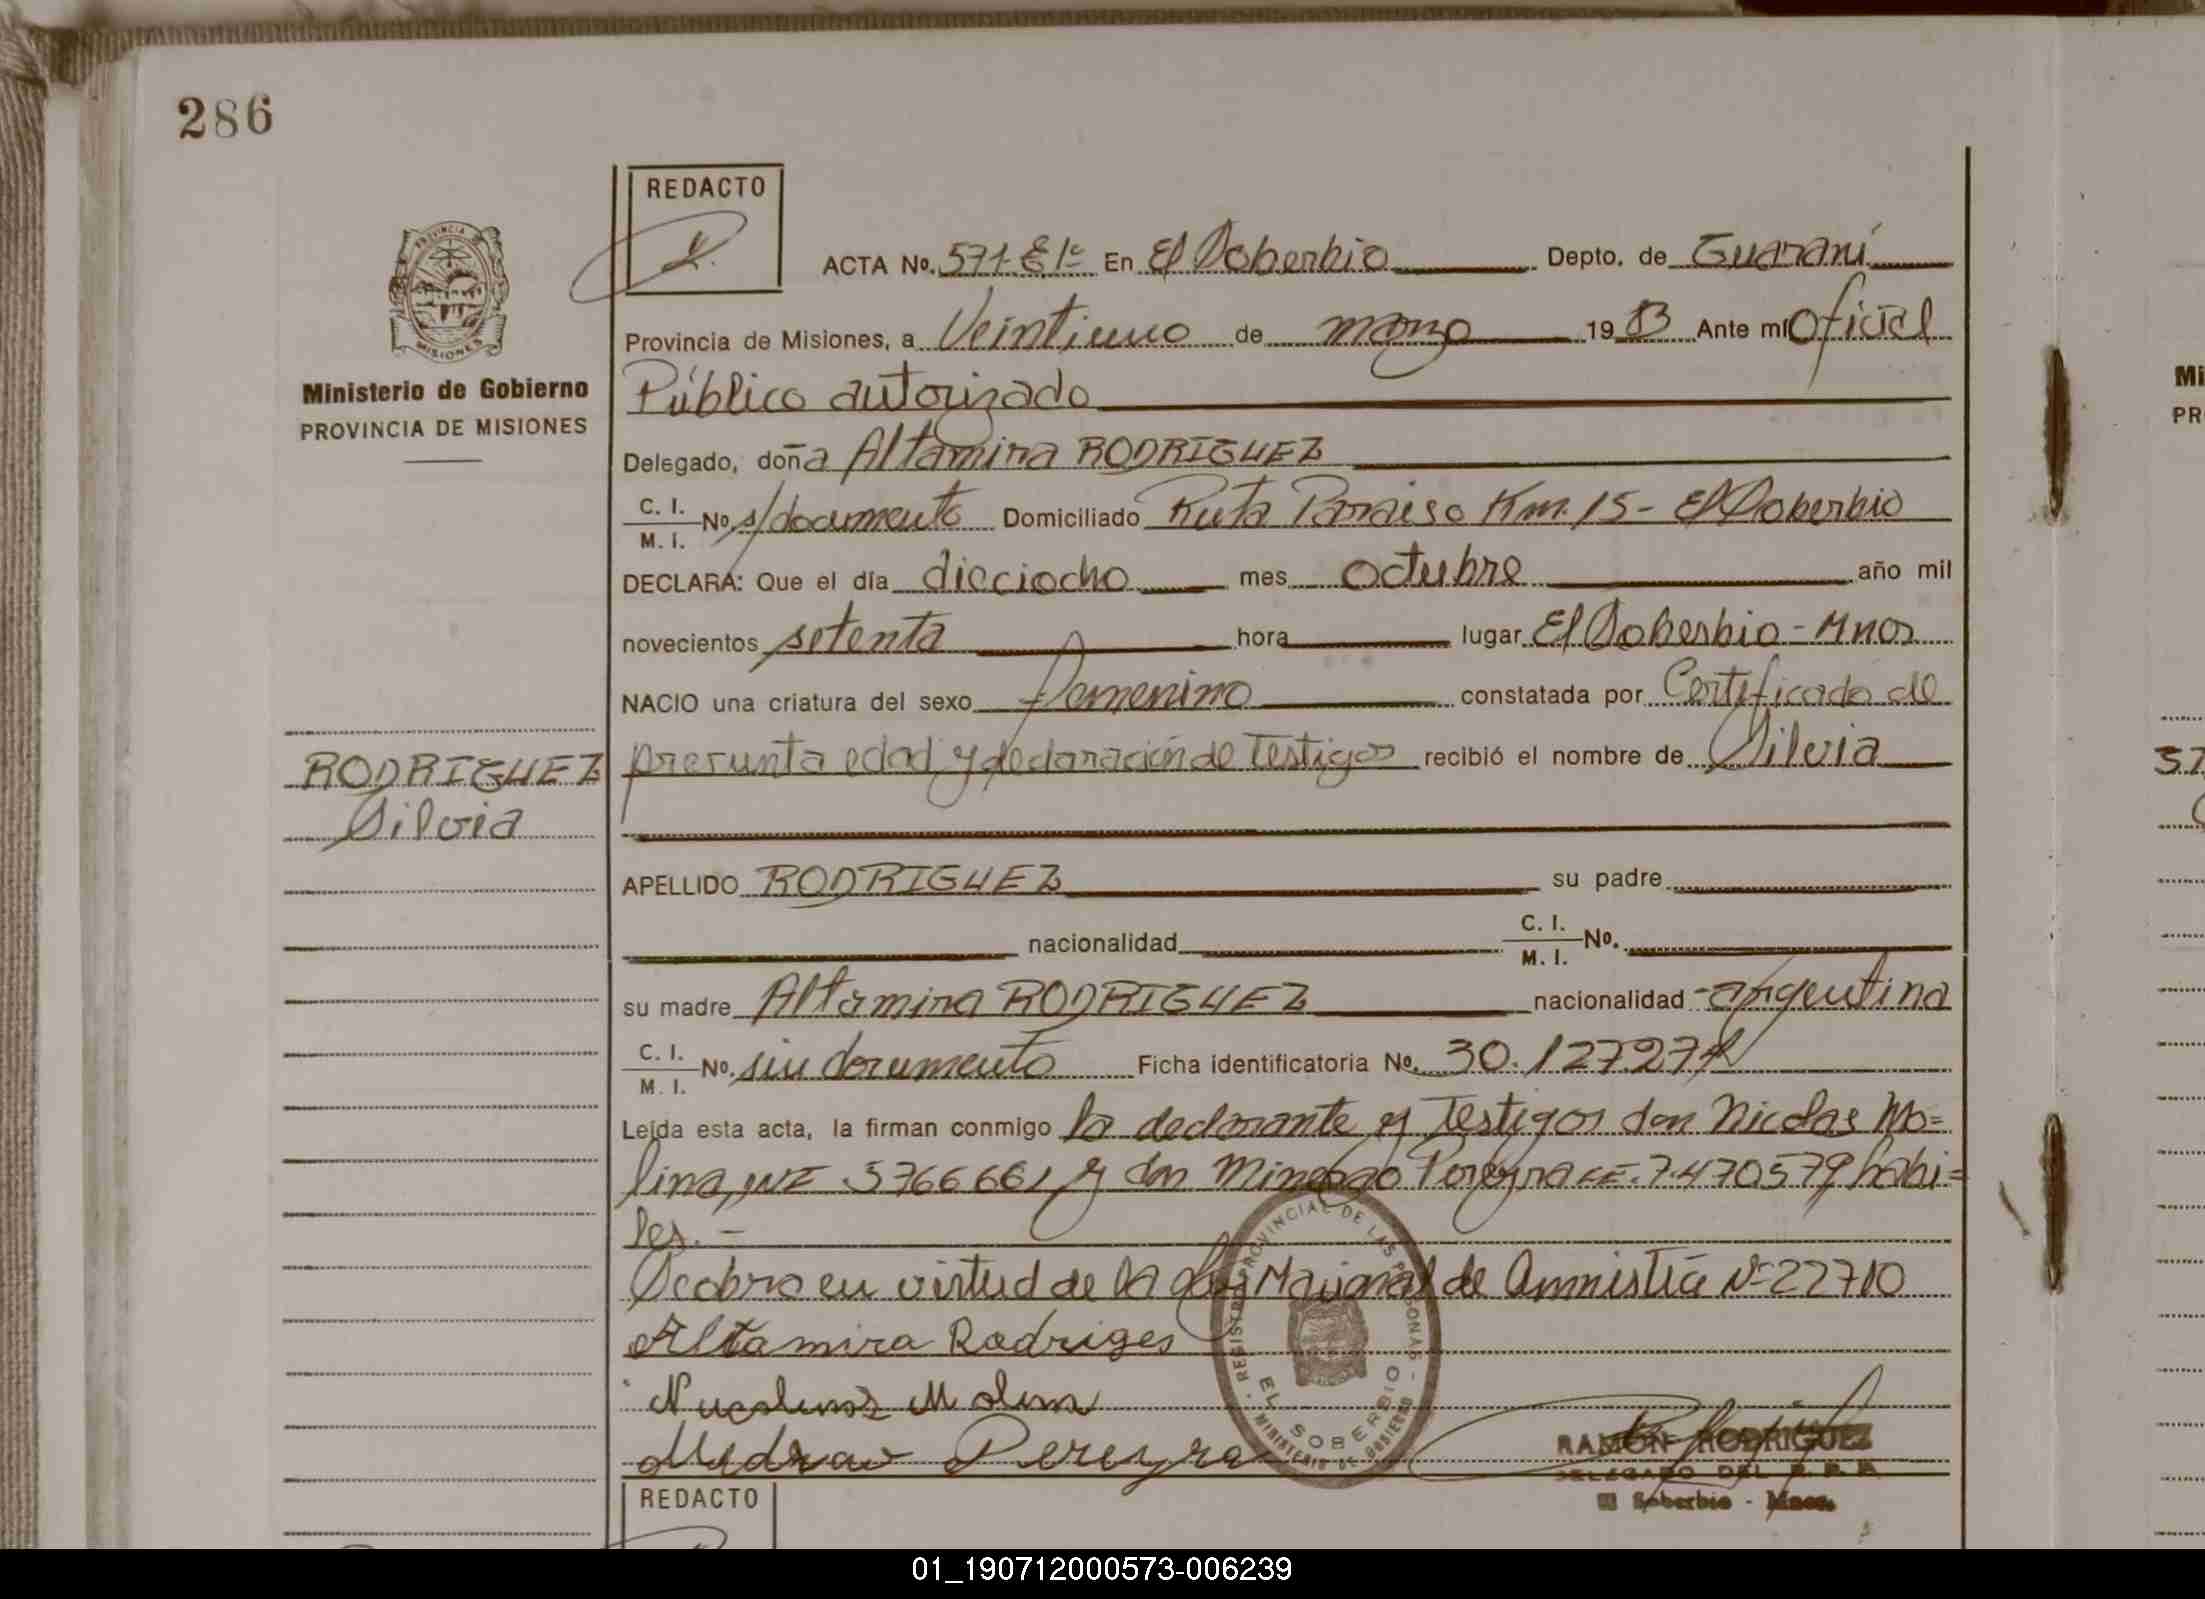 286
REDACTO
ACTA No. 571- En El Soberbio Depto. de Guaraní
Provincia de Misiones, a Veintiuno de marzo 1983 Ante mí Oficial
Público autorizado
PROVINCIA MISIONES
Ministerio de Gobierno
PROVINCIA DE MISIONES
Delegado, doña Altamira RODRIGUEZ
C. I.
M. I. No s/documento Domiciliado Ruta Paraiso Km. 15- El Soberbio
DECLARA: Que el día dieciocho mes octubre año mil
novecientos setenta hora lugar El Soberbio - Mnes
NACIO una criatura del sexo femenino constatada por Certificado de
presunta edad y declaración de Testigos recibió el nombre de Silvia
RODRIGUEZ
Silvia
APELLIDO RODRIGUEZ su padre
nacionalidad C. I.
M. I. No.
su madre Altamira RODRIGUEZ nacionalidad argentina
C. I.
M. I. No. sin documento Ficha identificatoria No. 30.127.274
Leída esta acta, la firman conmigo la declarante y Testigos don Nicolas Mo=
lina, 5766661 y don Pereyra 7.470579 habi=
les. -
en virtud de la Ley Nacional de Amnistía Nº 22710
Altamira Rodriges
Molina
Pereyra
REGISTRO PROVINCIAL DE LAS PERSONAS
EL SOBERBIO
MINISTERIO DE GOBIERNO
RAMON RODRIGUEZ
DELEGADO DEL R. P. P.
El Soberbio - Mnes.
REDACTO
Mi
PR
37
01_190712000573-006239